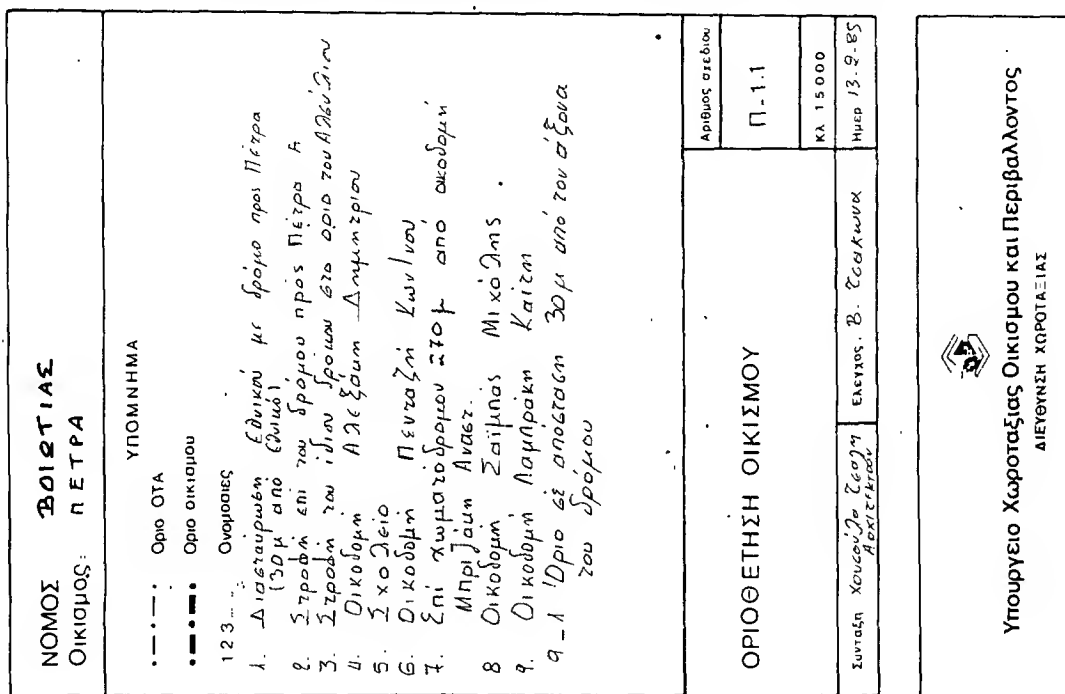 ΝΟΜΟΣ ΒΟΙΩΤΙΑΣ
Οικισμος: ΠΕΤΡΑ
ΥΠΟΜΝΗΜΑ
Οριο ΟΤΑ
Οριο οικισμου
1 2 3 ... : Ονομασιες
1. Διασταύρωση Εθνικού με δρόμο προς Πέτρα
(30μ από Εθνικό)
2. Στροφή επί του δρόμου προς Πέτρα Α
3. Στροφή του ίδιου δρόμου στο όριο του Αλσύλιου
4. Οικοδομή Αλεξάκη Δημητρίου
5. Σχολείο
6. Οικοδομή Πενταζή Κων/νου
7. Επί χωματοδρόμου 270μ από οικοδομή
Μπριλάκη Αναστ.
8 Οικοδομή Ζαΐμπας Μιχάλης .
9. Οικοδομή Λαμπράκη Καίτη
9_1 Όριο σε απόσταση 30μ από τον άξονα
του δρόμου
ΟΡΙΟΘΕΤΗΣΗ ΟΙΚΙΣΜΟΥ
Αριθμος σχεδιου
Π-1.1
Κλ 15000
Συνταξη Χουσούλα Τσαλη
Αρχιτέκτων
Ελεγχος. Β. Τσακωνα
Ημερ 13-9-85
Υπουργειο Χωροταξιας Οικισμου και Περιβαλλοντος
ΔΙΕΥΘΥΝΣΗ ΧΩΡΟΤΑΞΙΑΣ